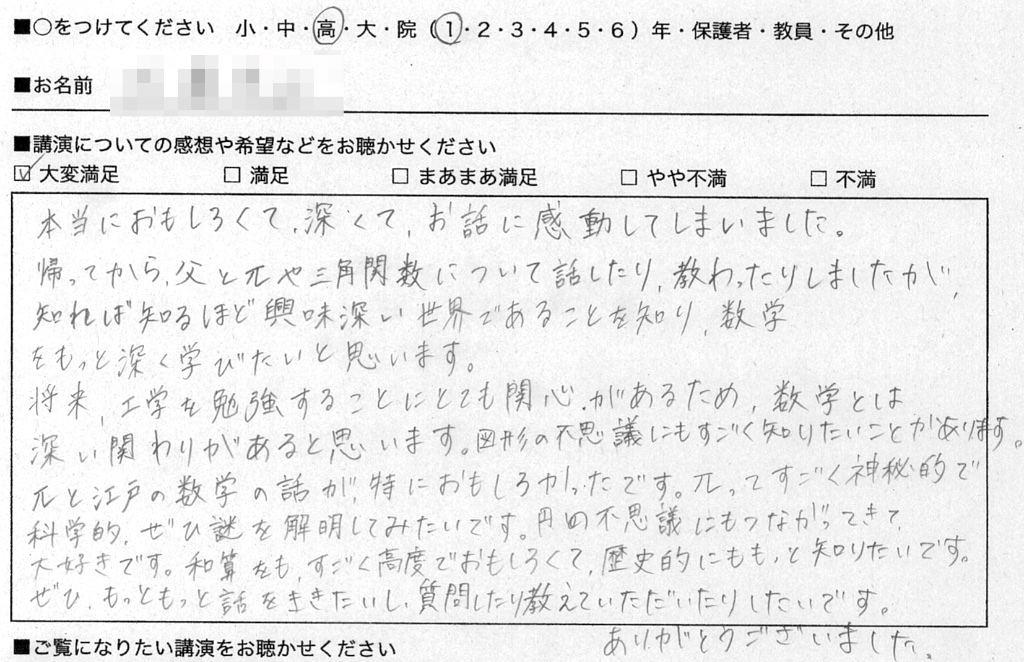 ■○をつけてください　小・中・高・大・院（1・2・3・4・5・6）年・保護者・教員・その他
■お名前
■講演についての感想や希望などをお聴かせください
☑ 大変満足　□ 満足　□ まあまあ満足　□ やや不満　□ 不満
本当におもしろくて、深くて、お話に感動してしまいました。
帰ってから、父とπや三角関数について話したり、教わったりしましたが、
知れば知るほど興味深い世界であることを知り、数学
をもっと深く学びたいと思います。
将来、工学を勉強することにとても関心があるため、数学とは
深い関わりがあると思います。図形の不思議にもすごく知りたいことがあります。
πと江戸の数学の話が、特におもしろかったです。πってすごく神秘的で
科学的、ぜひ謎を解明してみたいです。円の不思議にもつながってきて、
大好きです。和算も、すごく高度でおもしろくて、歴史的にももっと知りたいです。
ぜひ、もっともっと話をききたいし、質問したり教えていただいたりしたいです。
ありがとうございました。
■ご覧になりたい講演をお聴かせください